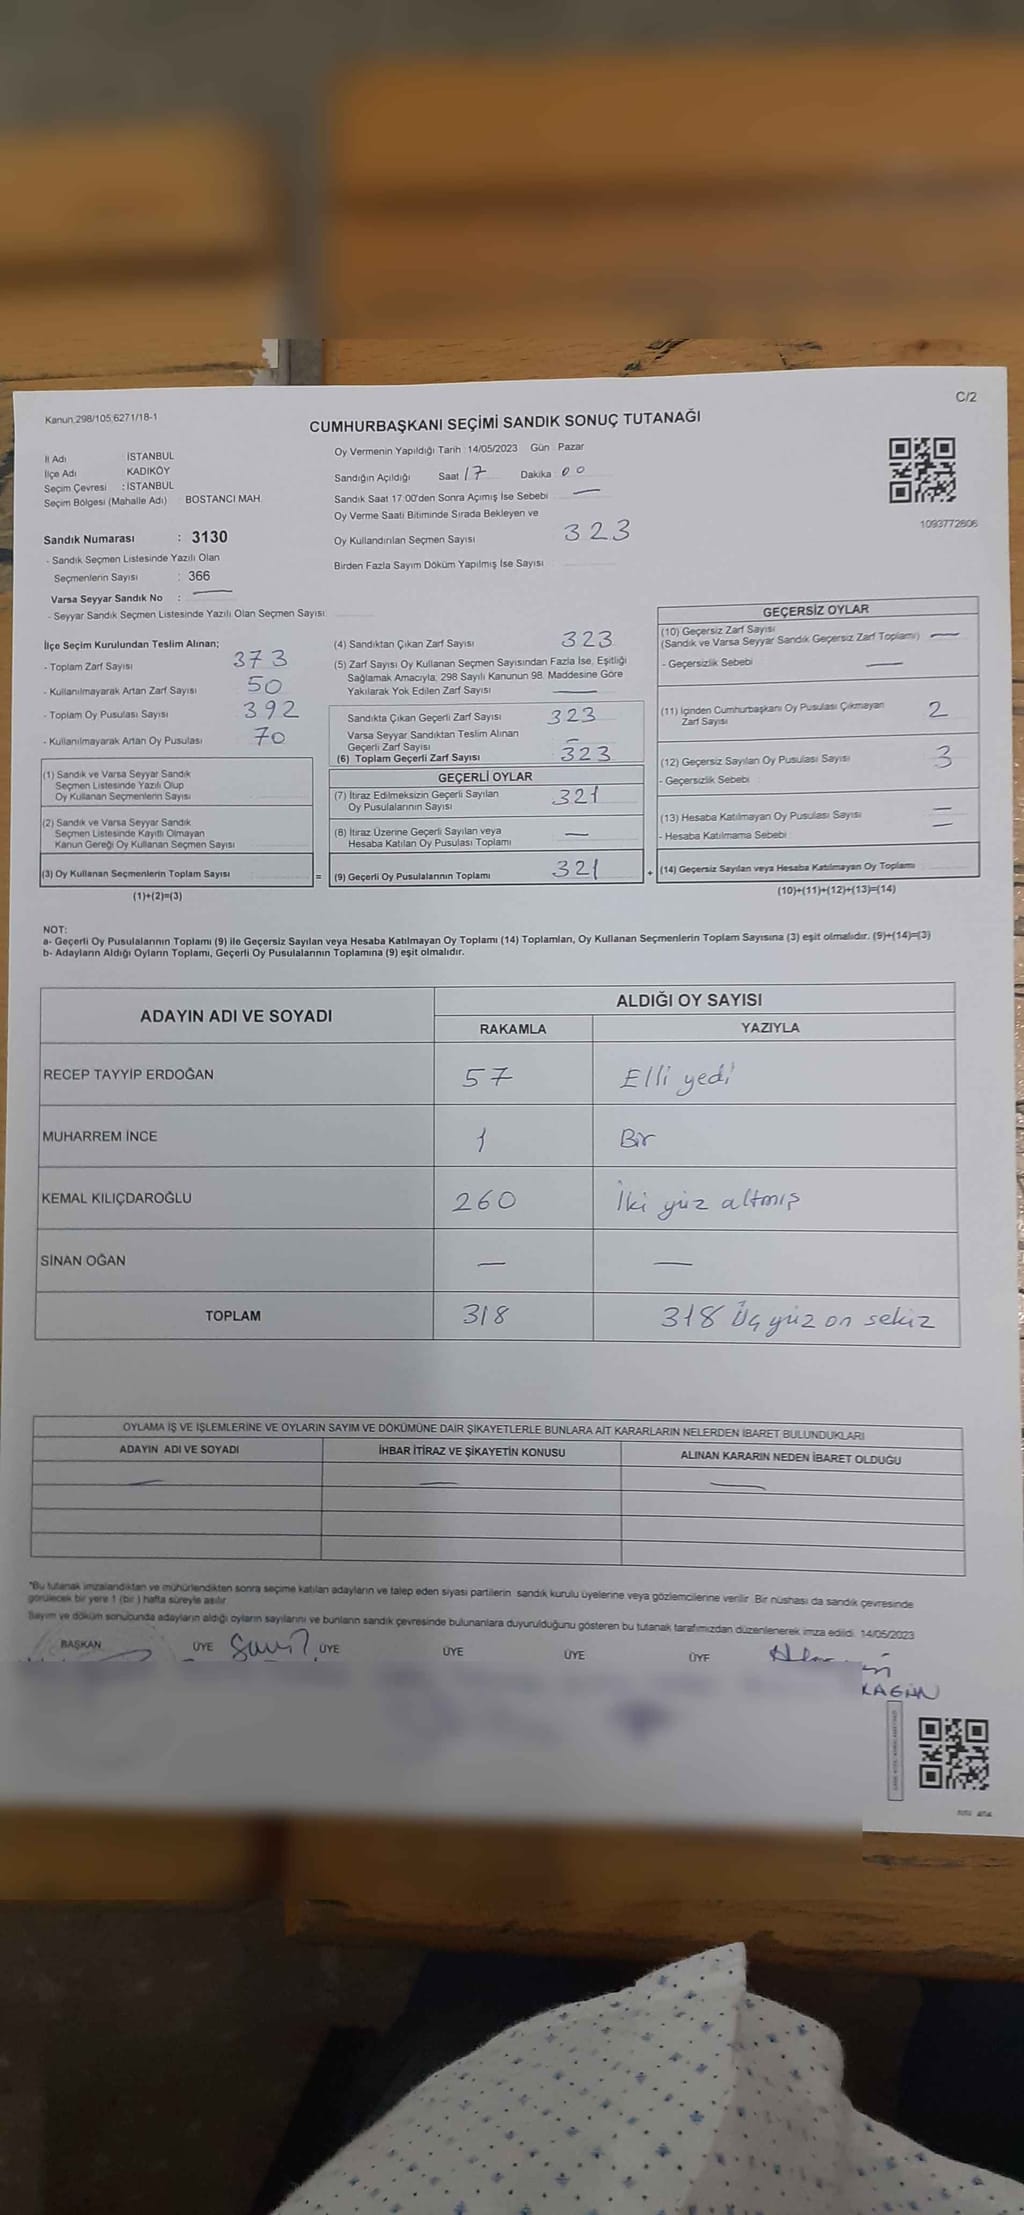 Kanun 298/105 6271/18-1
C/2
CUMHURBAŞKANI SEÇİMİ SANDIK SONUÇ TUTANAĞI
İl Adı : İSTANBUL
İlçe Adı : KADIKÖY
Seçim Çevresi : İSTANBUL
Seçim Bölgesi (Mahalle Adı) : BOSTANCI MAH.
Sandık Numarası : 3130
- Sandık Seçmen Listesinde Yazılı Olan
Seçmenlerin Sayısı : 366
Varsa Seyyar Sandık No : —
- Seyyar Sandık Seçmen Listesinde Yazılı Olan Seçmen Sayısı:
Oy Vermenin Yapıldığı Tarih : 14/05/2023 Gün : Pazar
Sandığın Açıldığı Saat 17 Dakika : 00
Sandık Saat 17:00'den Sonra Açımış İse Sebebi —
Oy Verme Saati Bitiminde Sırada Bekleyen ve
Oy Kullandırılan Seçmen Sayısı 323
Birden Fazla Sayım Döküm Yapılmış İse Sayısı
1093772806
İlçe Seçim Kurulundan Teslim Alınan;
- Toplam Zarf Sayısı 373
- Kullanılmayarak Artan Zarf Sayısı 50
- Toplam Oy Pusulası Sayısı 392
- Kullanılmayarak Artan Oy Pusulası 70
(1) Sandık ve Varsa Seyyar Sandık
Seçmen Listesinde Yazılı Olup
Oy Kullanan Seçmenlerin Sayısı
(2) Sandık ve Varsa Seyyar Sandık
Seçmen Listesinde Kayıtlı Olmayan
Kanun Gereği Oy Kullanan Seçmen Sayısı
(3) Oy Kullanan Seçmenlerin Toplam Sayısı =
(1)+(2)=(3)
(4) Sandıktan Çıkan Zarf Sayısı 323
(5) Zarf Sayısı Oy Kullanan Seçmen Sayısından Fazla İse, Eşitliği
Sağlamak Amacıyla, 298 Sayılı Kanunun 98. Maddesine Göre
Yakılarak Yok Edilen Zarf Sayısı —
Sandıkta Çıkan Geçerli Zarf Sayısı 323
Varsa Seyyar Sandıktan Teslim Alınan
Geçerli Zarf Sayısı —
(6) Toplam Geçerli Zarf Sayısı 323
GEÇERLİ OYLAR
(7) İtiraz Edilmeksizin Geçerli Sayılan
Oy Pusulalarının Sayısı 321
(8) İtiraz Üzerine Geçerli Sayılan veya
Hesaba Katılan Oy Pusulası Toplamı —
(9) Geçerli Oy Pusulalarının Toplamı 321 +
GEÇERSİZ OYLAR
(10) Geçersiz Zarf Sayısı
(Sandık ve Varsa Seyyar Sandık Geçersiz Zarf Toplamı) —
- Geçersizlik Sebebi —
(11) İçinden Cumhurbaşkanı Oy Pusulası Çıkmayan
Zarf Sayısı 2
(12) Geçersiz Sayılan Oy Pusulası Sayısı 3
- Geçersizlik Sebebi
(13) Hesaba Katılmayan Oy Pusulası Sayısı —
- Hesaba Katılmama Sebebi —
(14) Geçersiz Sayılan veya Hesaba Katılmayan Oy Toplamı
(10)+(11)+(12)+(13)=(14)
NOT:
a- Geçerli Oy Pusulalarının Toplamı (9) ile Geçersiz Sayılan veya Hesaba Katılmayan Oy Toplamı (14) Toplamları, Oy Kullanan Seçmenlerin Toplam Sayısına (3) eşit olmalıdır. (9)+(14)=(3)
b- Adayların Aldığı Oyların Toplamı, Geçerli Oy Pusulalarının Toplamına (9) eşit olmalıdır.
ADAYIN ADI VE SOYADI
ALDIĞI OY SAYISI
RAKAMLA YAZIYLA
RECEP TAYYİP ERDOĞAN 57 Elli yedi
MUHARREM İNCE 1 Bir
KEMAL KILIÇDAROĞLU 260 İki yüz altmış
SİNAN OĞAN — —
TOPLAM 318 318 Üç yüz on sekiz
OYLAMA İŞ VE İŞLEMLERİNE VE OYLARIN SAYIM VE DÖKÜMÜNE DAİR ŞİKAYETLERLE BUNLARA AİT KARARLARIN NELERDEN İBARET BULUNDUKLARI
ADAYIN ADI VE SOYADI İHBAR İTİRAZ VE ŞİKAYETİN KONUSU ALINAN KARARIN NEDEN İBARET OLDUĞU
— — —
*Bu tutanak imzalandıktan ve mühürlendikten sonra seçime katılan adayların ve talep eden siyasi partilerin sandık kurulu üyelerine veya gözlemcilerine verilir. Bir nüshası da sandık çevresinde
görülecek bir yere 1 (bir) hafta süreyle asılır.
Sayım ve döküm sonucunda adayların aldığı oyların sayılarını ve bunların sandık çevresinde bulunanlara duyurulduğunu gösteren bu tutanak tarafımızdan düzenlenerek imza edildi. 14/05/2023
BAŞKAN ÜYE ÜYE ÜYE ÜYE ÜYE